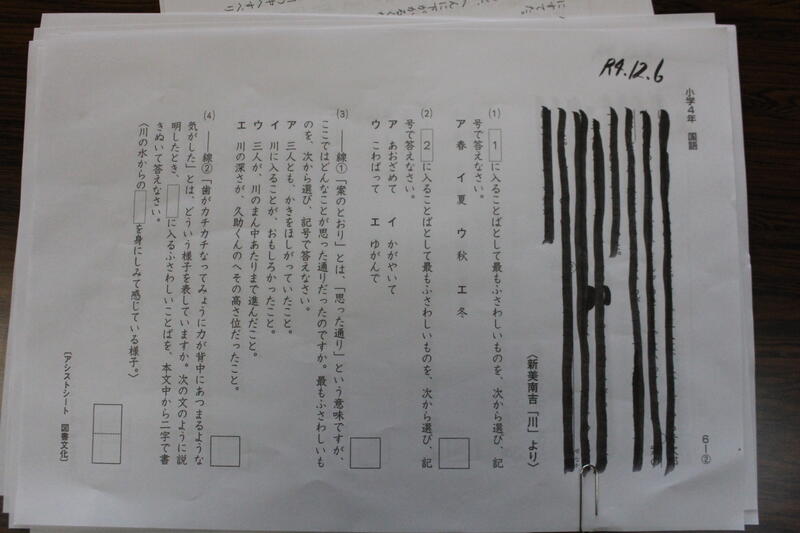 R4.12.6
小学4年 国語
6―②
〈新美南吉「川」より〉
(1) 1 に入ることばとして最もふさわしいものを、次から選び、記
号で答えなさい。
ア 春 イ 夏 ウ 秋 エ 冬
(2) 2 に入ることばとして最もふさわしいものを、次から選び、記
号で答えなさい。
ア あおざめて イ かがやいて
ウ こわばって エ ゆがんで
(3) ――線①「案のとおり」とは、「思った通り」という意味ですが、
ここではどんなことが思った通りだったのですか。最もふさわしいも
のを、次から選び、記号で答えなさい。
ア 三人とも、かきをほしがっていたこと。
イ 川に入ることが、おもしろかったこと。
ウ 三人が、川のまん中あたりまで進んだこと。
エ 川の深さが、久助くんのへその高さ位だったこと。
(4) ――線②「歯がカチカチなってみょうに力が背中にあつまるような
気がした」とは、どういう様子を表していますか。次の文のように説
明したとき、 に入るふさわしいことばを、本文中から二字で書
きぬいて答えなさい。
〈川の水からの を身にしみて感じている様子。〉
〔アシストシート 図書文化〕